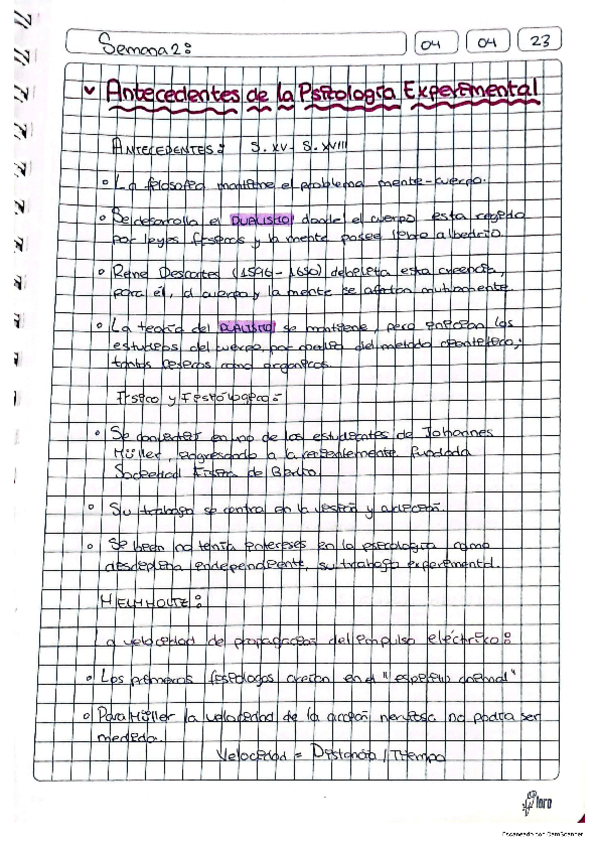 Semana 2:
04 04 23
Antecedentes de la Psicología Experimental
ANTECEDENTES: S. XV - S. XVIII
La filosofía mantiene el problema mente-cuerpo.
Se desarrolla el DUALISMO donde el cuerpo esta regido
por leyes físicas y la mente posee libre albedrío.
Rene Descartes (1596 - 1650) debilita esta creencia,
para él, el cuerpo y la mente se afectan mutuamente.
La teoría del DUALISMO se mantiene, pero inician los
estudios del cuerpo, por medio del método científico;
tantos físicos como orgánicos.
Físico y Fisiólogico:
Se convierte en uno de los estudiantes de Johannes
Müller, ingresando a la recientemente fundada
Sociedad Física de Berlín.
Su trabajo se centra en la visión y audición.
Si bien no tenía intereses en la psicología como
disciplina independiente, su trabajo experimental.
HELMHOLTZ:
La velocidad de propagación del impulso eléctrico:
Los primeros fisiólogos creían en el "espíritu animal"
Para Müller la velocidad de la acción nerviosa no podía ser
medida.
Velocidad = Distancia / Tiempo
loro
Escaneado con CamScanner